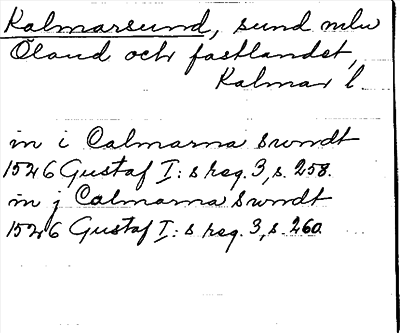 Kalmarsund, sund mln
Öland och fastlandet,
Kalmar l.
in i Calmarna Swndt
1526 Gustaf I:s reg. 3, s. 258.
in j Calmarna Swndt
1526 Gustaf I:s reg. 3, s. 260